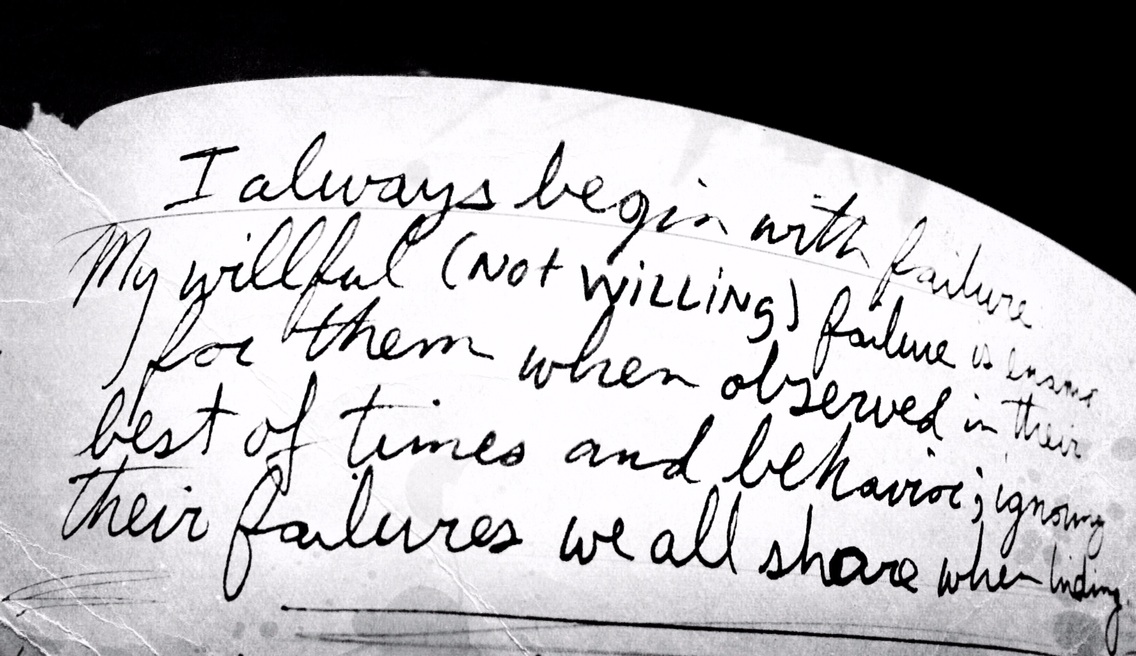 I always begin with failure
My willful (Not WiLLiNg) failure is
for them when observed in their
best of times and behavior; ignoring
their failures we all share when hiding.